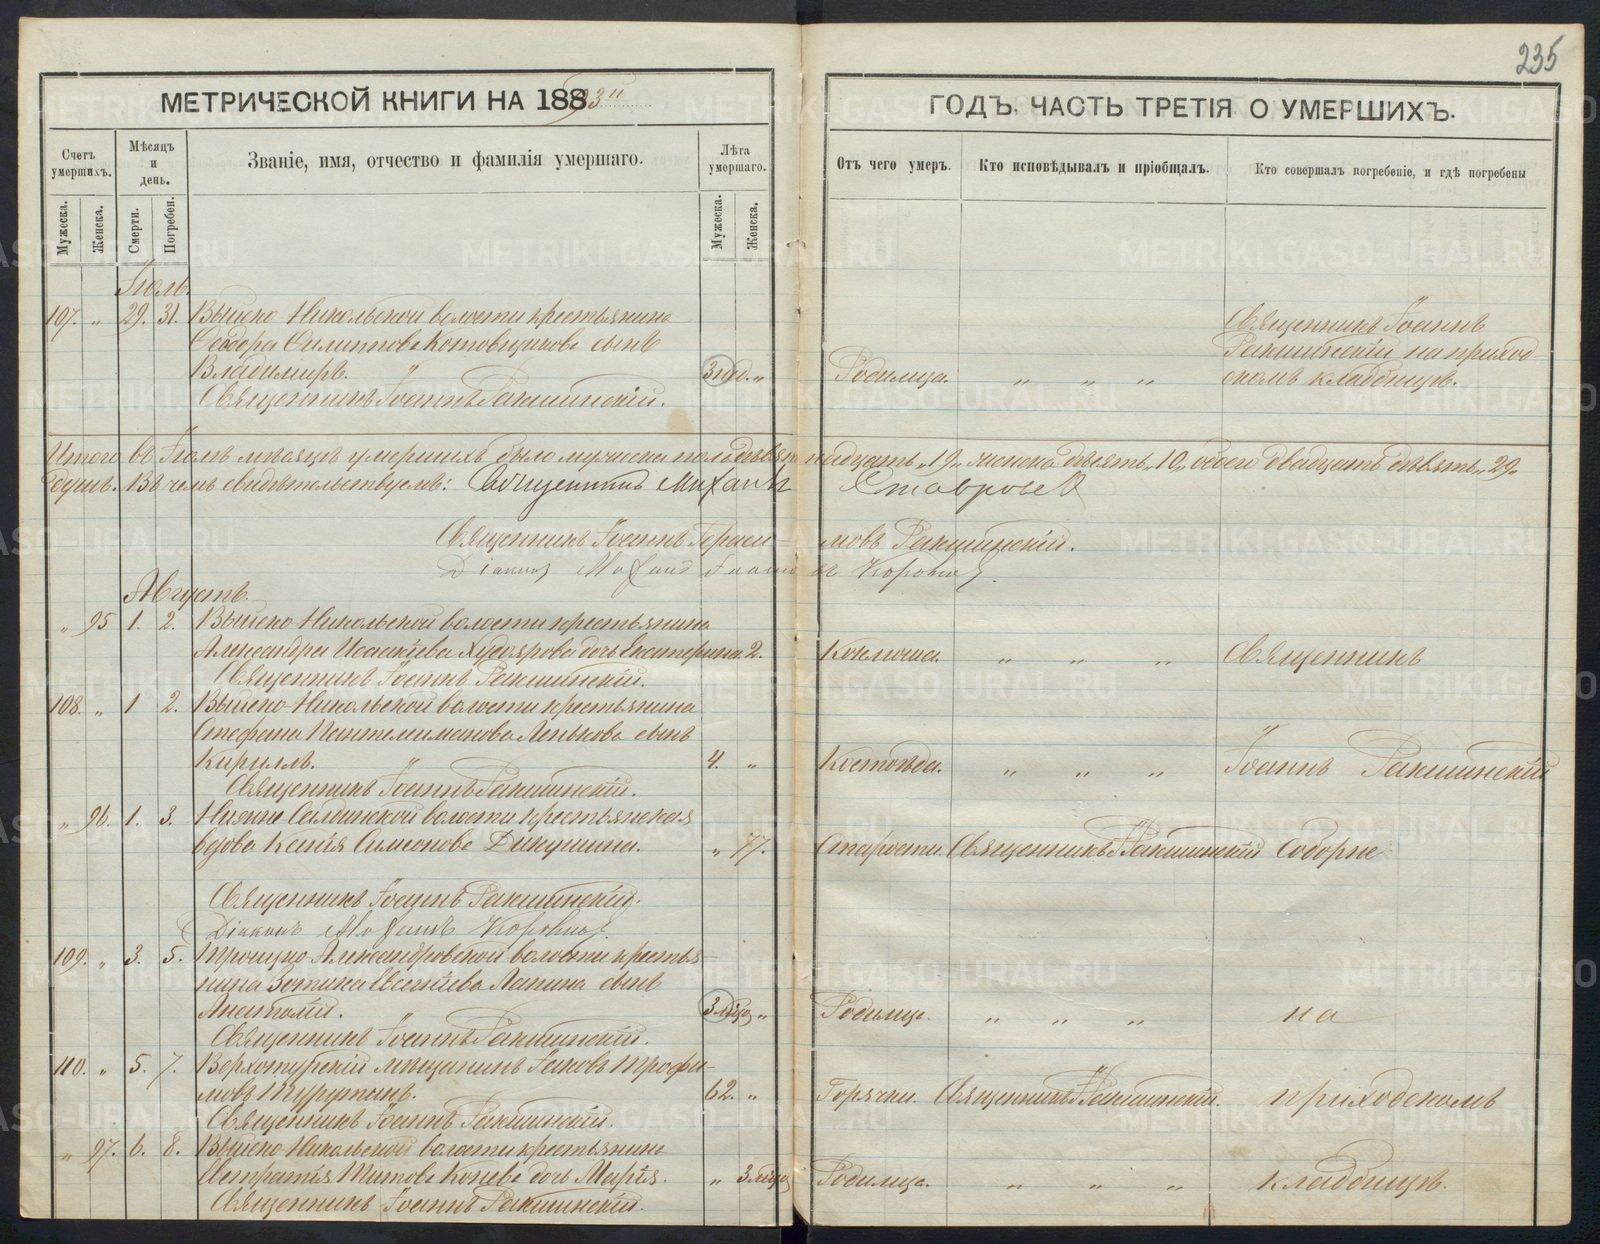 235
МЕТРИЧЕСКОЙ КНИГИ НА 1893
ГОДЪ, ЧАСТЬ ТРЕТІЯ О УМЕРШИХЪ.
Счетъ умершихъ.
Мѣсяцъ и день.
Званіе, имя, отчество и фамилія умершаго.
Лѣта умершаго.
Отъ чего умеръ.
Кто исповѣдывалъ и пріобщалъ.
Кто совершалъ погребеніе, и гдѣ погребены
Мужеска.
Женска.
Смерти.
Погребен.
Мужеска.
Женска.
Іюль.
107. „ 29. 31. Выйско-Никольской волости крестьянина
Ѳеодора Филиппова Котовщикова сынъ
Владимиръ. 3 нед. „ Родимца. „ „ „
Священникъ Іоаннъ
Ракшинскій на приход-
скомъ кладбищѣ.
Священникъ Іоаннъ Ракшинскій.
Итого въ Іюлѣ мѣсяцѣ умершихъ было мужеска пола девятнадцать „19„ женска десять „10„ обоего двадцать девять „29„
душъ. Въ чемъ свидѣтельствуемъ: Священникъ Михаилъ Ставровъ
Священникъ Іоаннъ Гераси-мовъ Ракшинскій.
Діаконъ
Августъ.
„ 95 1. 2. Выйско-Никольской волости крестьянина
Александра Исаакіева Худоярова дочь Екатерина. 2. Коклюша. „ „ „ Священникъ
Священникъ Іоаннъ Ракшинскій.
108. „ 1 2. Выйско-Никольской волости крестьянина
Стефана Пантелимонова Ленькова сынъ
Кириллъ. 4. „ Костоѣда. „ „ „ Іоаннъ Ракшинскій
Священникъ Іоаннъ Ракшинскій.
„ 96. 1. 3. Нижне-Салдинской волости крестьянская
вдова Ксенія Симеонова Дикушина. „ 77. Старости. Священникъ І. Ракшинскій Соборне
Священникъ Іоаннъ Ракшинскій.
Діаконъ
109. „ 3. 5. Троицко-Александровской волости крестья-
нина Зотика Евгеніева Лапина сынъ
Анатолій. 3 мѣс. „ Родимца. „ „ „ на
Священникъ Іоаннъ Ракшинскій.
110. „ 5. 7. Верхотурскій мѣщанинъ Іаковъ Трофи-
мовъ 62. „ Горячки. Священникъ І. Ракшинскій. приходскомъ
Священникъ Іоаннъ Ракшинскій.
„ 97. 6. 8. Выйско-Никольской волости крестьянина
Евстратія Титова Конева дочь Марія. „ 3 мѣс. Родимца. „ „ „ кладбищѣ.
Священникъ Іоаннъ Ракшинскій.
METRIKI.GASO-URAL.RU